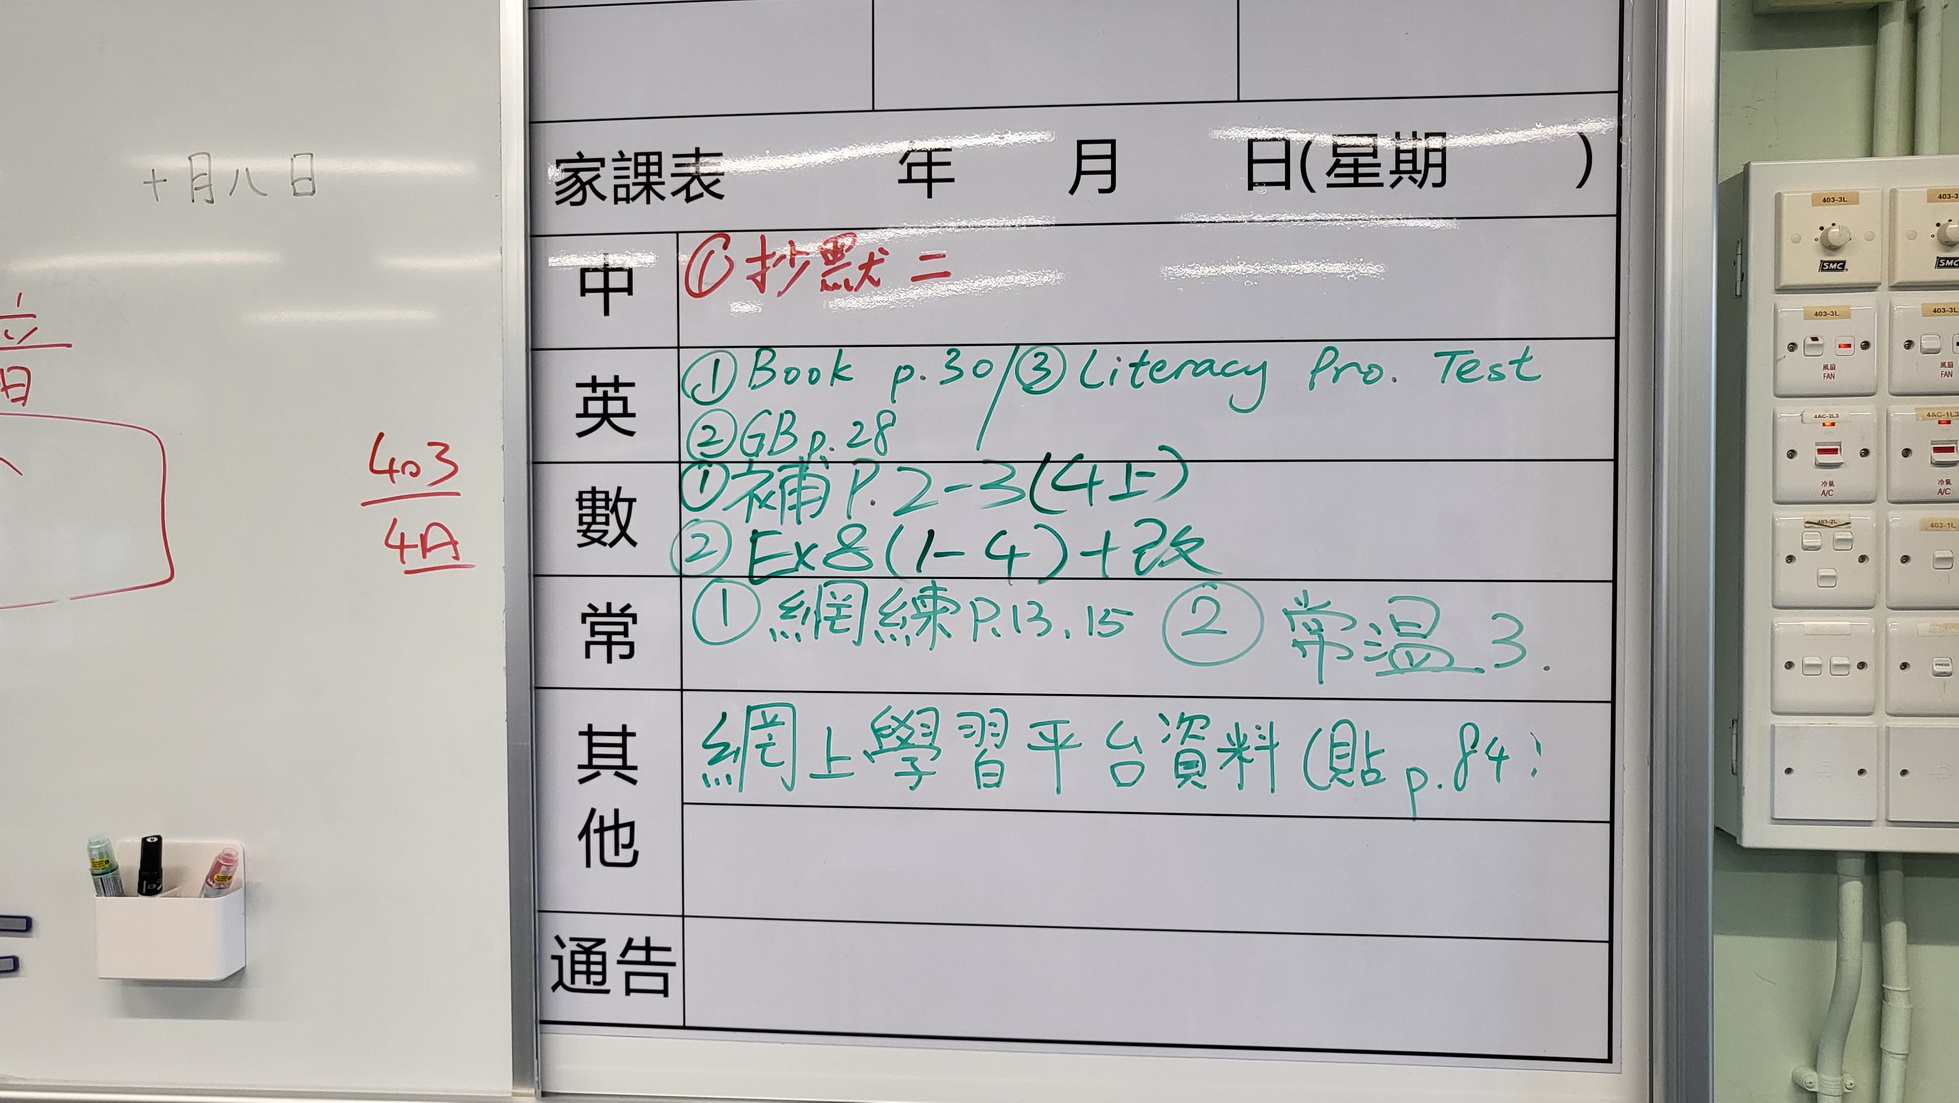 十月八日
立
日
403
4A
家課表 年 月 日(星期 )
中 ①抄默二
英 ①Book p.30/③Literacy Pro. Test
②GB p.28
數 ①補P.2-3(4上)
②Ex8(1-4)+改
常 ①網練P.13,15 ②常温3.
其他 網上學習平台資料(貼p.84)
通告
403-3L
SMC
SMC
403-3L
403-3L
風扇
FAN
風扇
FAN
4AC-2L3
4AC-1L3
冷氣
A/C
冷氣
A/C
403-2L
403-1L